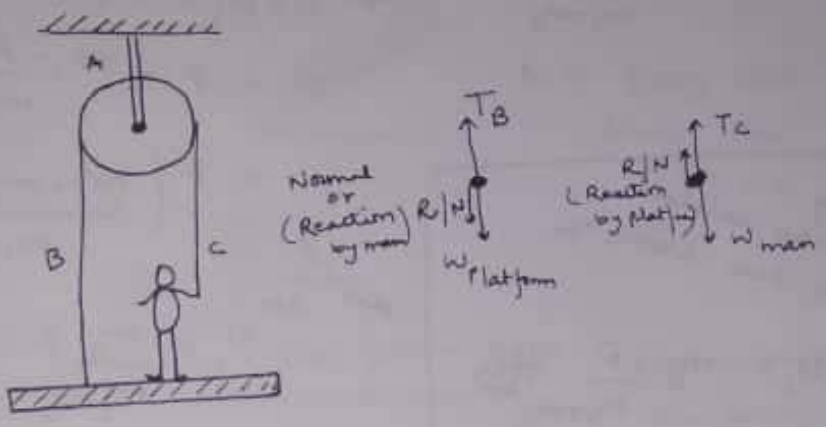 A
B
C
T_B
Normal
or
(Reaction)
by man
R/N
W_Platform
T_C
R/N
(Reaction
by plat/m)
W_man